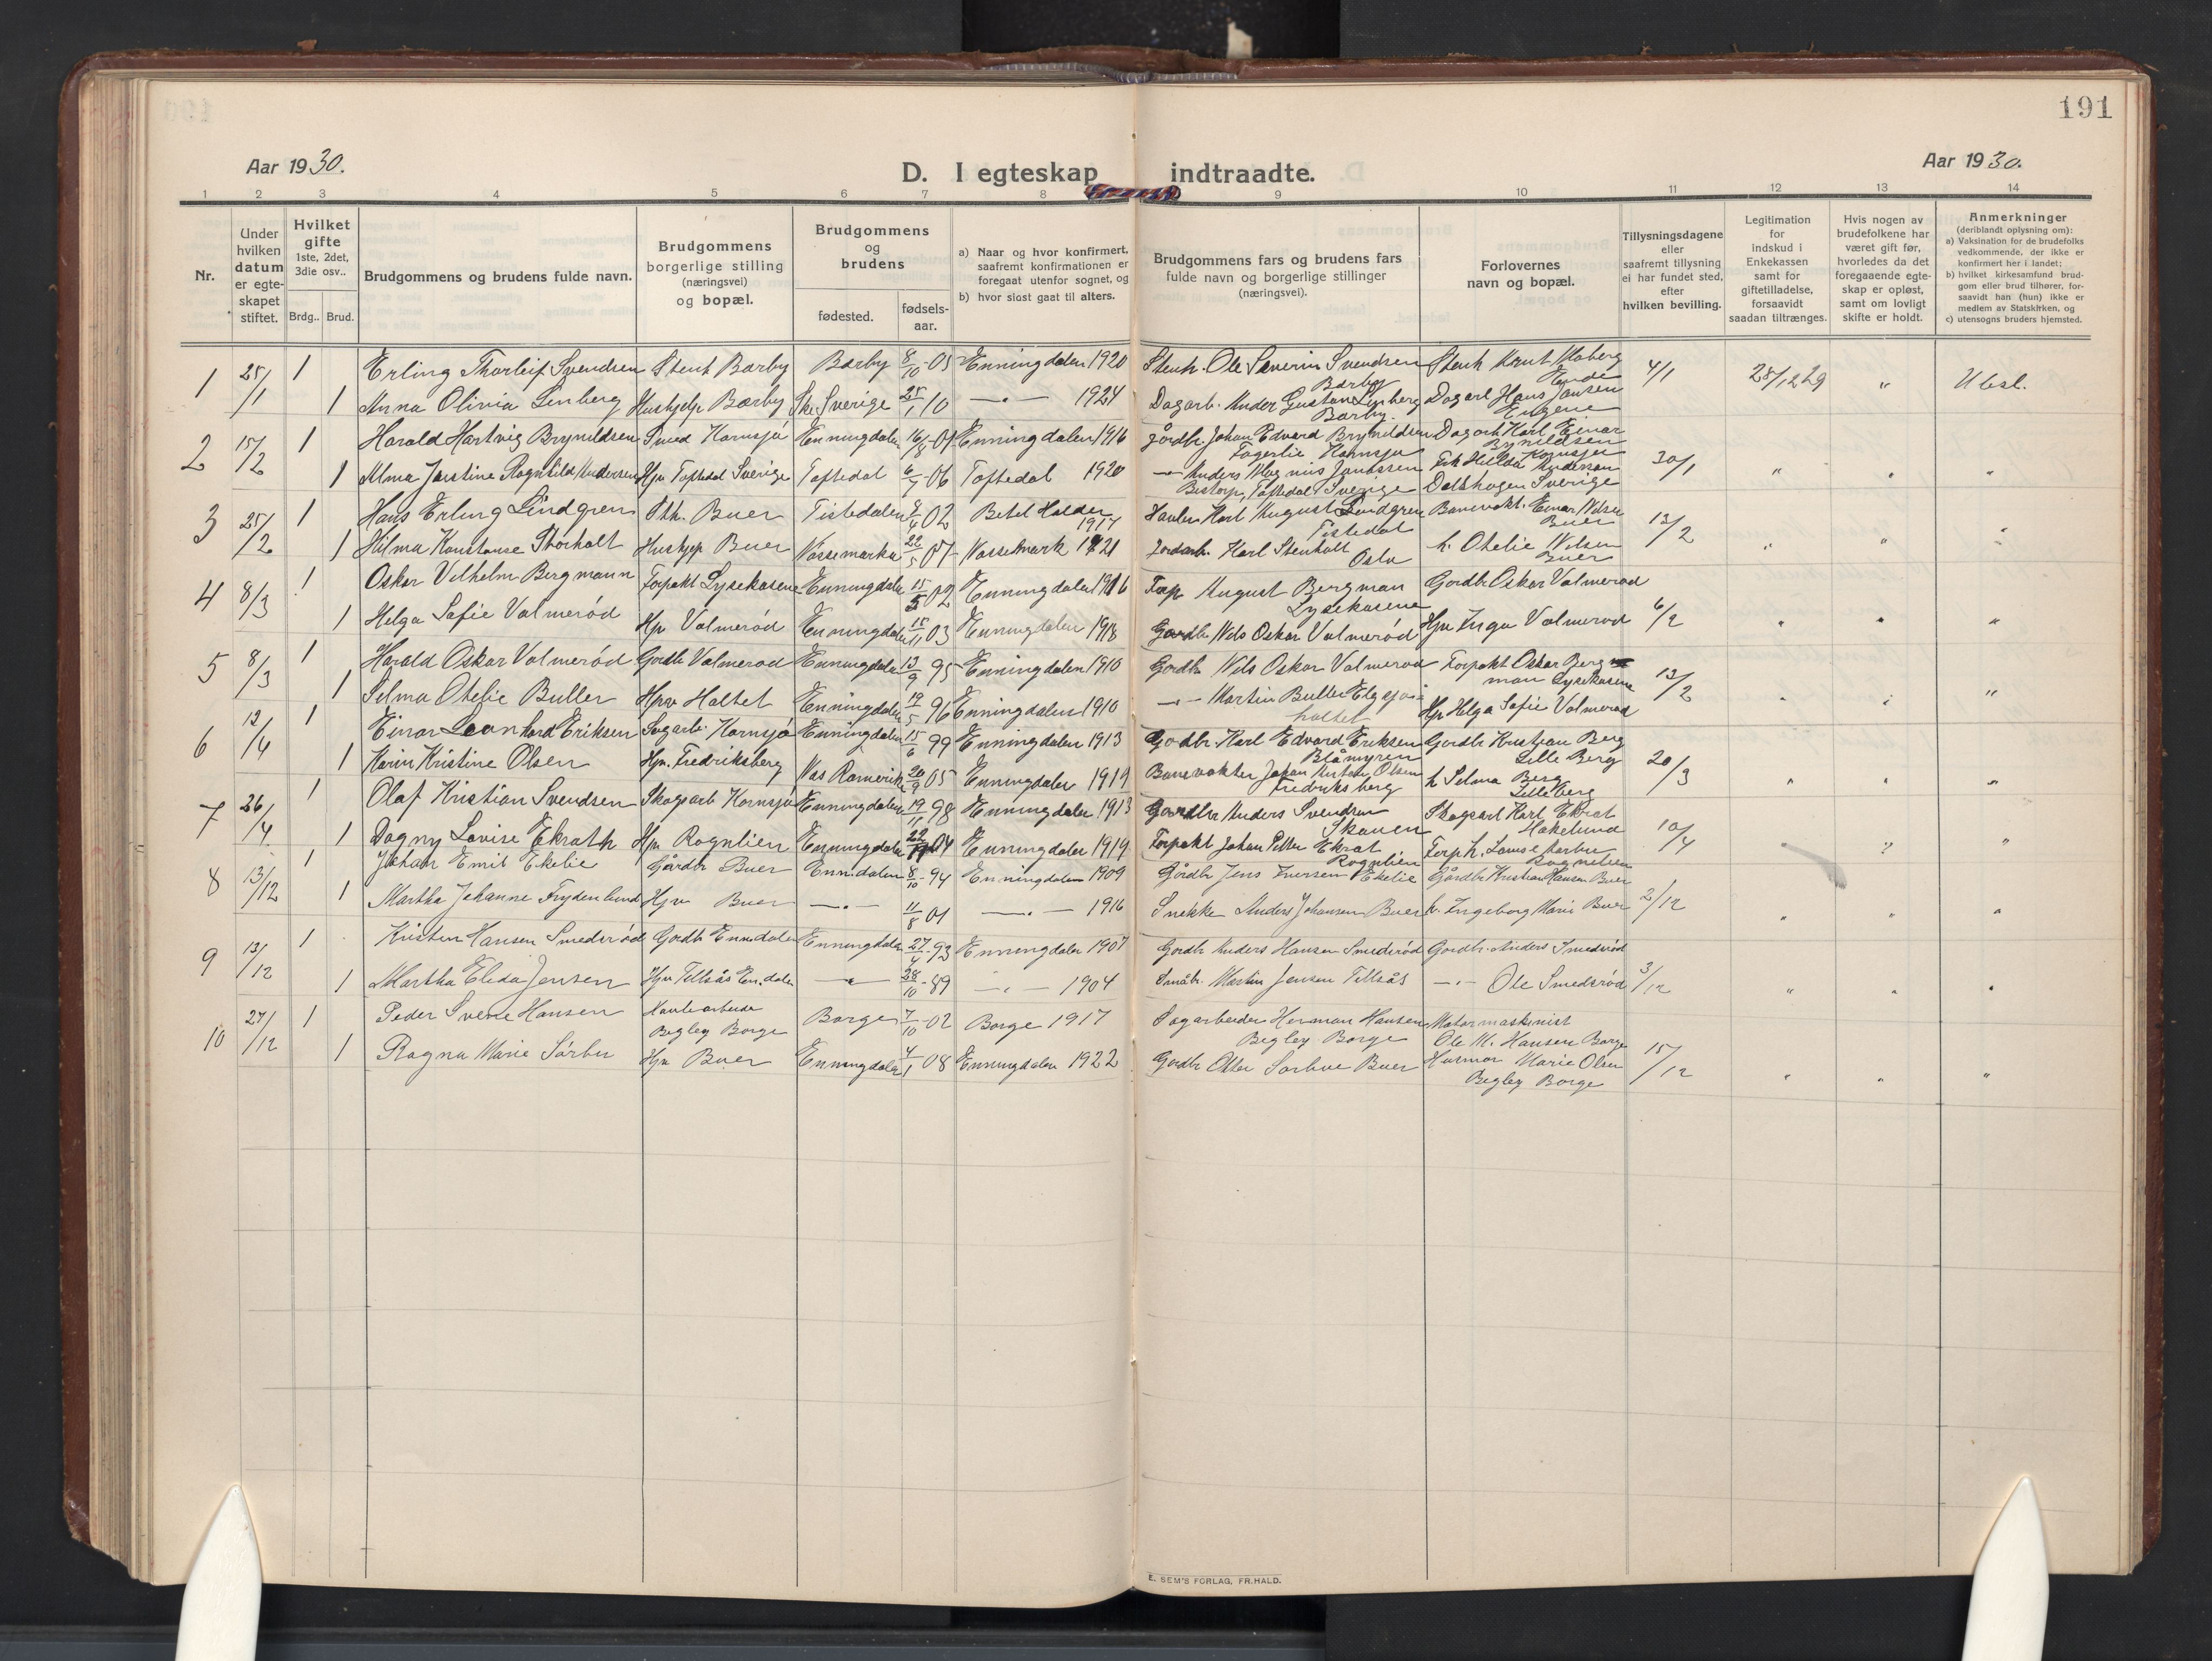 191
Aar 1930.
D. I egteskap indtraadte.
Aar 1930.
1 2 3 4 5 6 7 8 9 10 11 12 13 14
Nr.
Under hvilken datum er egteskapet stiftet.
Hvilket gifte 1ste, 2det, 3die osv..
Brdg..
Brud.
Brudgommens og brudens fulde navn.
Brudgommens borgerlige stilling (næringsvei) og bopæl.
Brudgommens og brudens
fødested.
fødsels-aar.
a) Naar og hvor konfirmert, saafremt konfirmationen er foregaat utenfor sognet, og
b) hvor sidst gaat til alters.
Brudgommens fars og brudens fars fulde navn og borgerlige stillinger (næringsvei).
Forlovernes navn og bopæl.
Tillysningsdagene eller saafremt tillysning ei har fundet sted, efter hvilken bevilling.
Legitimation for indskud i Enkekassen samt for giftetilladelse, forsaavidt saadan tiltrænges.
Hvis nogen av brudefolkene har været gift før, hvorledes da det foregaaende egteskap er opløst, samt om lovligt skifte er holdt.
Anmerkninger (deriblandt oplysning om):
a) Vaksination for de brudefolks vedkommende, der ikke er konfirmert her i landet;
b) hvilket kirkesamfund brudgom eller brud tilhører, forsaavidt han (hun) ikke er medlem av Statskirken, og
c) utensogns bruders hjemsted.
1 25/1 1 Erling Thorleif Svendsen Stenh Bærby Bærby 8/10-05 Enningdalen 1920 Stenh. Ole Severin Svendsen Bærby Stenh Knut Moberg 4/1 28/12 29 " Ubesl.
1 Anna Olivia Linberg Hushjelp Bærby Ske. Sverige 25/1 10 -"- 1924 Dagarb. Ander Gustav Linberg Bærby. Dagarb Hans Jansen
2 15/2 1 Harald Hartvig Brynildsen Smed Kornsjø Enningdalen 16/8-01 Enningdalen 1916 gårdbr. Johan Edvard Brynildsen Fagerlie Kornsjø Dagarb Karl Einar Bynildsen Kornsjøn 30/1 " " "
1 Alma Justine Ragnhild Andersen Hjv Toftedal Sverige Toftedal 6/4-06 Toftedal 1920 -"- Anders Magnus Janussen Bistorp, Toftedal Sverige Frk Hilda Anderson Dalshogen Sverige
3 25/2 1 Hans Erling Lindgren Sth. Buer Tistedalen 02 Betel Halden 1917 Havler Karl August Lindgren Tistedal Banevokt. Einar Nilsen Buer 13/2 " " "
1 Hilma Konstanse Storholt Hushjp Buer Vassemarka 22/5 07 Vasselmark 1921 Jordarb. Karl Stenholt Oslo h. Otelie Nilsen Buer
4 8/3 1 Oskar Vilhelm Bergmann Forpakt Lysekasene Enningdalen 15/3 02 Enningdalen 1916 Forp August Bergman Lysekasene Gordbr Oskar Valmerød 6/2 " " "
1 Helga Sofie Valmerød Hjv Valmerød Enningdalen 15/11 03 Enningdalen 1918 Gordb. Nils Oskar Valmerød Hjv Inga Valmerød
5 8/3 1 Harald Oskar Valmerød Gordb Valmerød Enningdalen 13/9 95 Enningdalen 1910 Gordb Nils Oskar Valmerød Forpakt Oskar Bergman Lysekasene 13/2 " " "
1 Selma Otelie Buller Hjv Holtet Enningdalen 19/5 96 Enningdalen 1910 -"- Martin Buller holtet Hjv Helga Sofie Valmerød
6 12/4 1 Einar Leonhard Eriksen Sagarb. Kornsjø Enningdalen 15/6 99 Enningdalen 1913 Godbr. Karl Edvard Eriksen Blåmyren Gordbr Kristian Berg Lille Berg 20/3 " " "
1 Karin Kristine Olsen Hjv. Fredriksberg Nas Romerike 20/9 05 Enningdalen 1919 Banevokter Johan Anton Olsen Fredriksberg h Selma Berg Lille Berg
7 26/4 1 Olaf Kristian Svendsen Skogsarb Kornsjø Enningdalen 19/11 98 Enningdalen 1913 Gordbr Anders Svendsen Skauen Skogsarb Karl Ekrat Hakelund 10/4 " ? "
1 Dagny Lovise Ekrath Hjv Rognlien Enningdalen 22/11 04 Enningdalen 1919 Forpakt Johan Petter Ekrat Rognlien Forp h. Lovise Rognelien
8 13/12 1 Johan Emil Ekelie Gårdbr Buer Enn.dalen 8/10-94 Enningdalen 1909 Gårdbr Jens Iversen Ekelie Gårdbr Kristian Hansen Buer 2/12 " " "
1 Martha Johanne Frydenlund Hjv Buer -"- 11/8 01 -"- 1916 Snekke Anders Johansen Buer h. Ingeborg Marie Buer
9 13/12 1 Kristen Hansen Smedsrød Gordb Enn.dalen Enningdalen 27/4-93 Enningdalen 1907 Gordbr Anders Hansen Smedsrød Gordbr. Anders Smedsrød 3/12 " " "
1 Martha Elida Jensen Hjv Tellsås En.dalen -"- 28/10-89 -"- 1904 Småbr. Martin Jensen Tellsås -"- Ole Smedsrød
10 27/12 1 Peder Svere Hansen Havlearbeider Begley Borge Borge 7/10-02 Borge 1917 Sagarbeider Herman Hansen Begley Borge Motormaskinist Ole M. Hansen Borge 15/12 " " "
1 Ragna Marie Sørbu Hjv Buer Enningdalen 4/1 08 Enningdalen 1922 Gordbr Otter Sorbue Buer Husmor Marie Olsen Begley Borge
E. SEM'S FORLAG, FR.HALD.